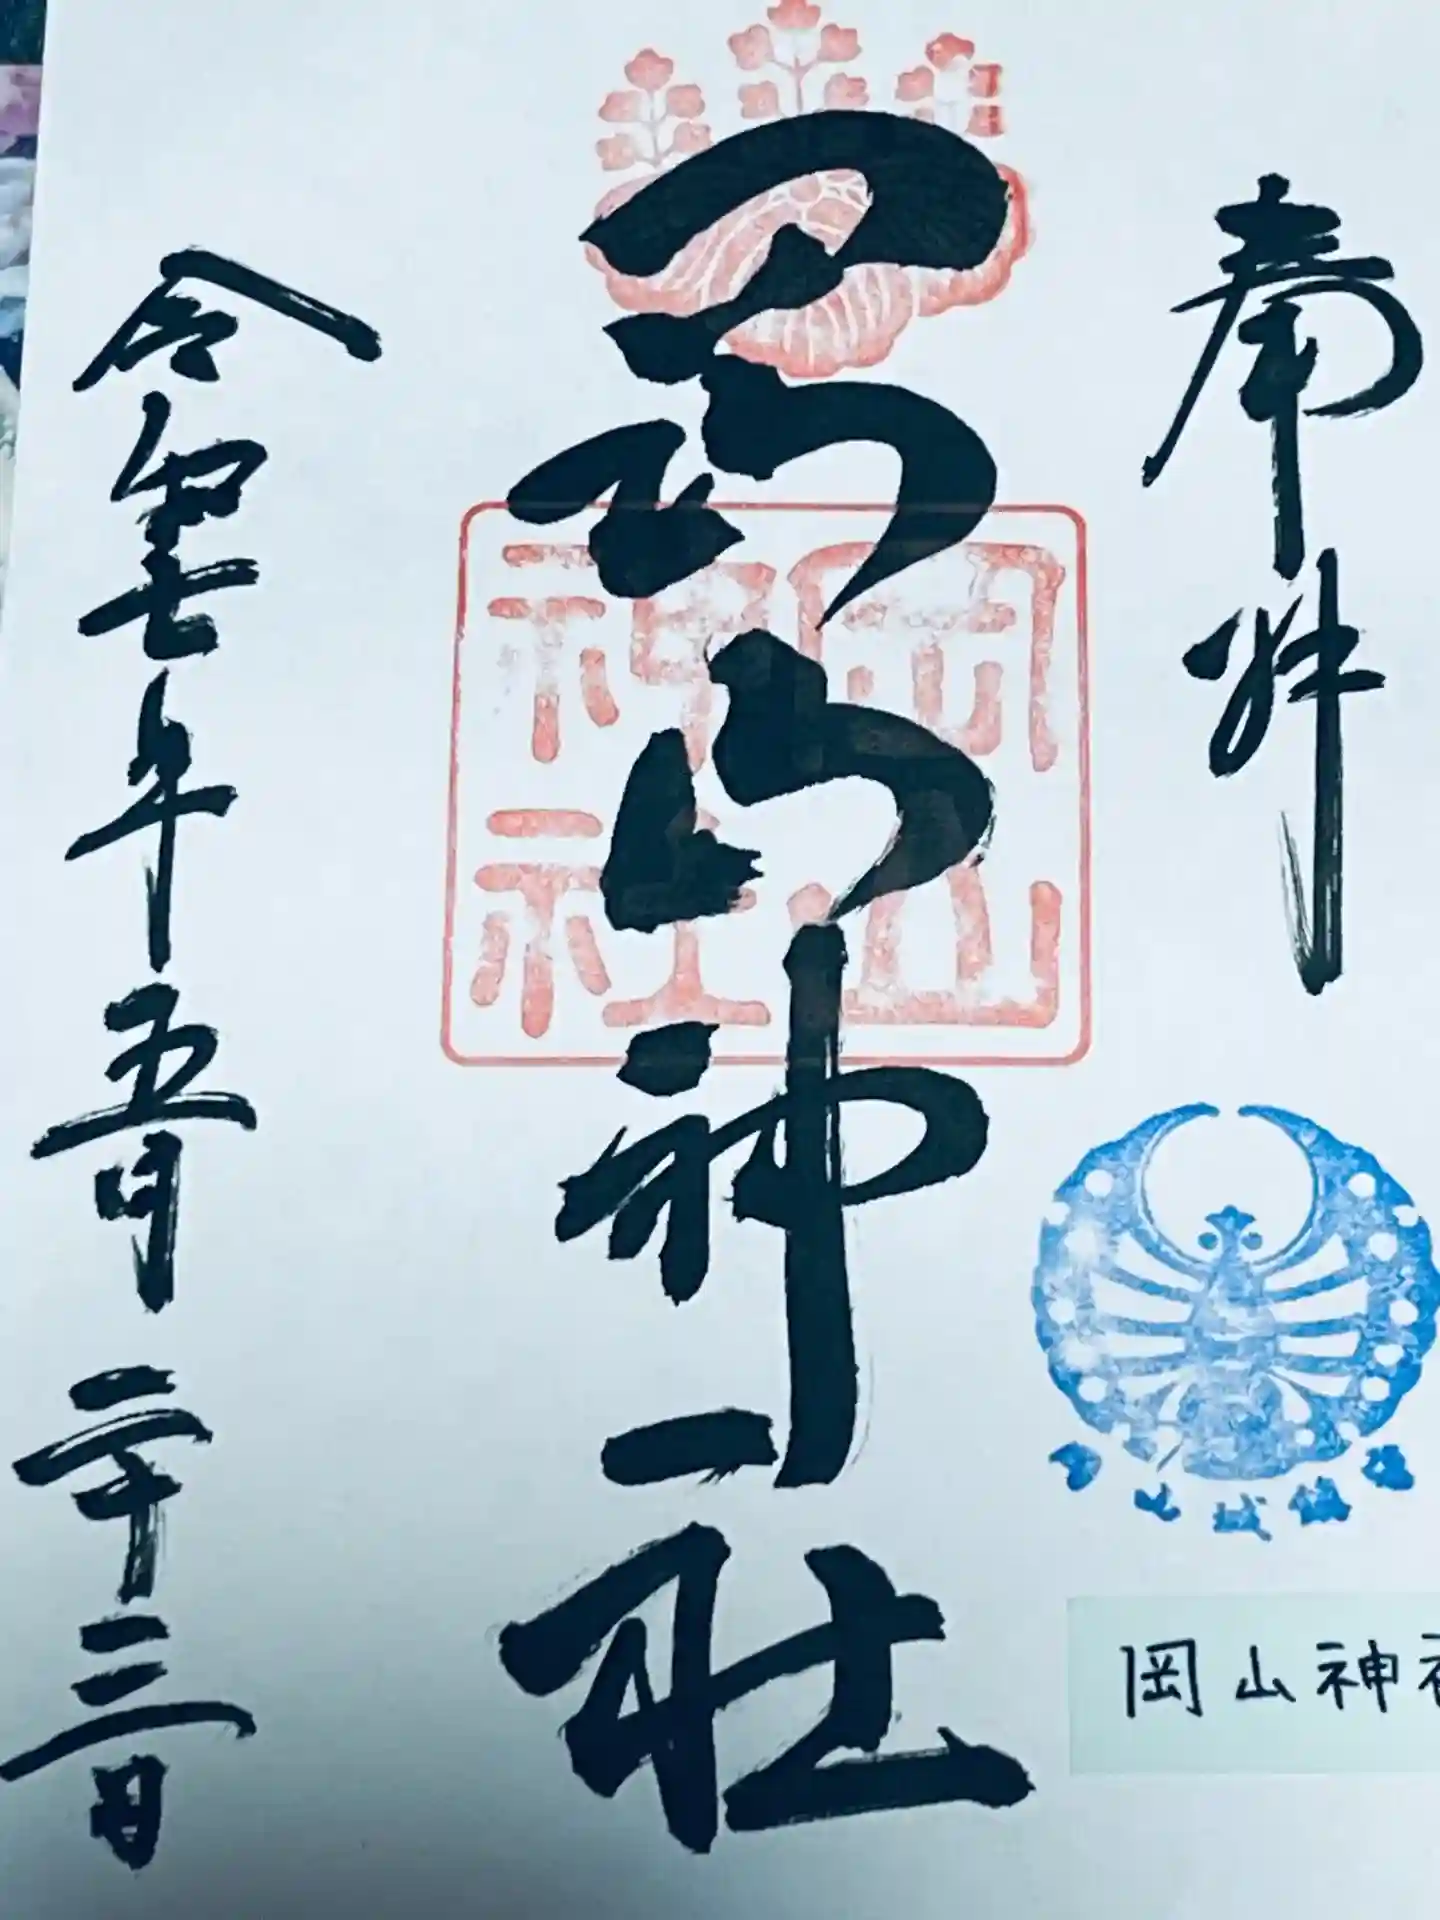 奉拝
岡山城鎮守
岡山神社
岡山
神社
岡山神社
令和七年五月二十三日